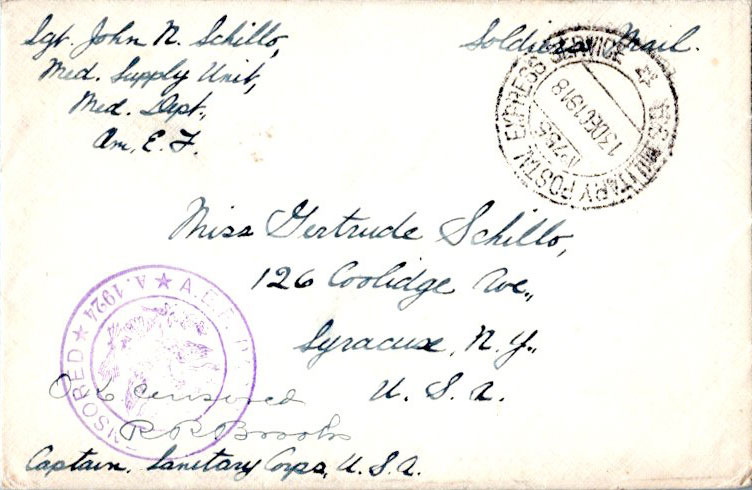 Sgt. John N. Schillo,
Med. Supply Unit,
Med. Dept.,
Am. E. F.
Soldiers Mail.
U.S. MILITARY POSTAL EXPRESS SERVICE
13 DEC 1918
No 755
Miss Gertrude Schillo,
126 Coolidge Ave.,
Syracuse, N. Y.,
U. S. A.
A.E.F.
CENSORED
A. 1924
O.K. censored
R R Brooks
Captain. Sanitary Corps, U. S. A.